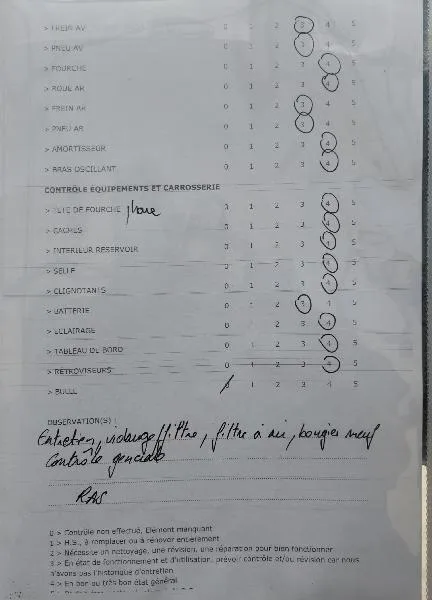 > FREIN AV 0 1 2 3 4 5
> PNEU AV 0 1 2 3 4 5
> FOURCHE 0 1 2 3 4 5
> ROUE AR 0 1 2 3 4 5
> FREIN AR 0 1 2 3 4 5
> PNEU AR 0 1 2 3 4 5
> AMORTISSEUR 0 1 2 3 4 5
> BRAS OSCILLANT 0 1 2 3 4 5
CONTRÔLE ÉQUIPEMENTS ET CARROSSERIE
> TETE DE FOURCHE phare 0 1 2 3 4 5
> CACHES 0 1 2 3 4 5
> INTERIEUR RESERVOIR 0 1 2 3 4 5
> SELLE 0 1 2 3 4 5
> CLIGNOTANTS 0 1 2 3 4 5
> BATTERIE 0 1 2 3 4 5
> ECLAIRAGE 0 2 3 4 5
> TABLEAU DE BORD 0 1 2 3 4 5
> RÉTROVISEURS 0 1 2 3 4 5
> BULLE 0 1 2 3 4 5
OBSERVATION(S) :
Entretien, vidange/filtre, filtre à air, bougies neuf
Contrôle generale
RAS
0 > Contrôle non effectué, Elément manquant
1 > H.S., à remplacer ou à rénover entièrement
2 > Nécessite un nettoyage, une révision, une réparation pour bien fonctionner
3 > En état de fonctionnement et d'utilisation, prévoir contrôle et/ou révision car nous
n'avons pas l'historique d'entretien
4 > En bon ou très bon état général